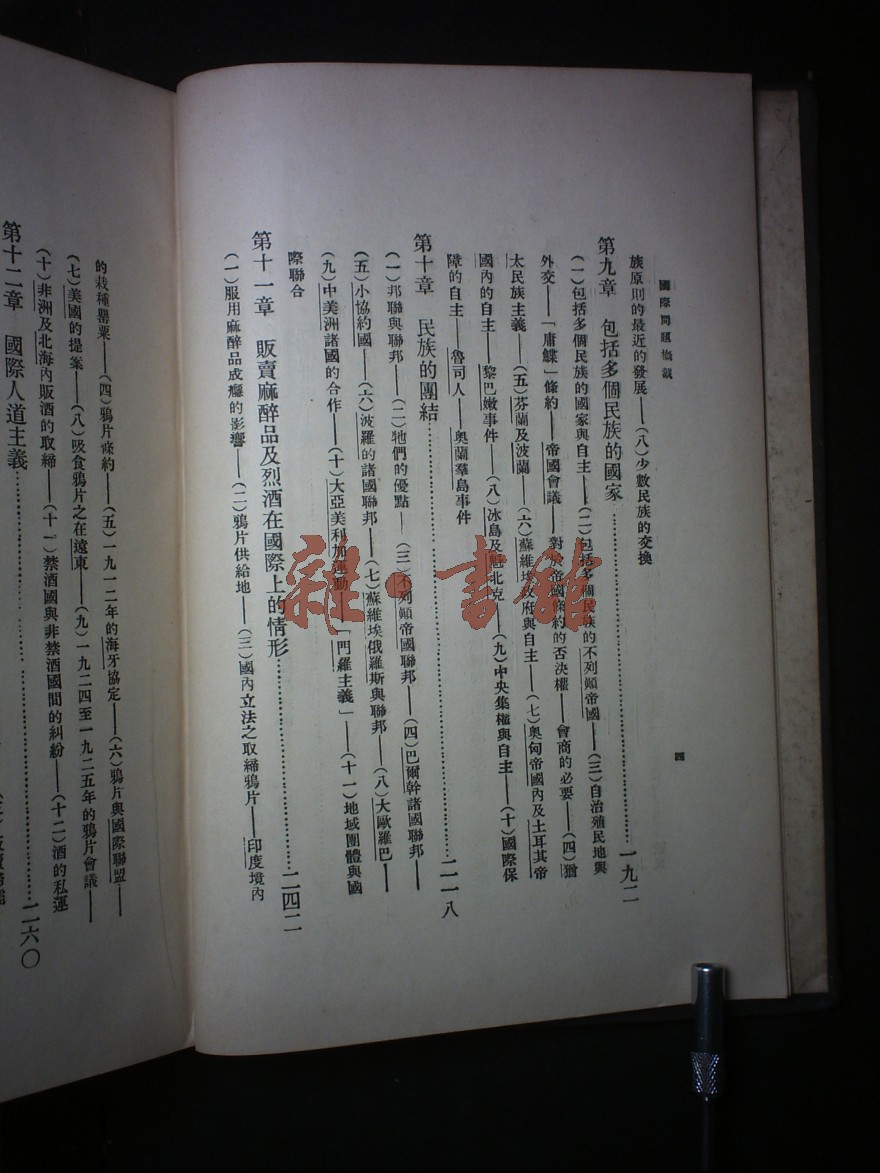 國際問題概觀
四
族原則的最近的發展——(八)少數民族的交換
第九章 包括多個民族的國家……一九二
(一)包括多個民族的國家與自主——(二)包括多個民族的不列顛帝國——(三)自治殖民地與
外交——「庸鰈」條約——帝國會議——對於帝國條約的否決權——會商的必要——(四)猶
太民族主義——(五)芬蘭及波蘭——(六)蘇維埃政府與自主——(七)奧匈帝國內及土耳其帝
國內的自主——黎巴嫩事件——(八)冰島及魁北克——(九)中央集權與自主——(十)國際保
障的自主——魯司人——奧蘭羣島事件
第十章 民族的團結……二一八
(一)邦聯與聯邦——(二)牠們的優點——(三)不列顛帝國聯邦——(四)巴爾幹諸國聯邦——
(五)小協約國——(六)波羅的諸國聯邦——(七)蘇維埃俄羅斯與聯邦——(八)大歐羅巴——
(九)中美洲諸國的合作——(十)大亞美利加運動——「門羅主義」——(十一)地域團體與國
際聯合
第十一章 販賣麻醉品及烈酒在國際上的情形……二四二
(一)服用麻醉品成癮的影響——(二)鴉片供給地——(三)國內立法之取締鴉片——印度境內
的栽種罌粟——(四)鴉片條約——(五)一九一二年的海牙協定——(六)鴉片與國際聯盟——
(七)美國的提案——(八)吸食鴉片之在遠東——(九)一九二四至一九二五年的鴉片會議——
(十)非洲及北海內販酒的取締——(十一)禁酒國與非禁酒國間的糾紛——(十二)酒的私運
第十二章 國際人道主義……二六〇
雜·書館